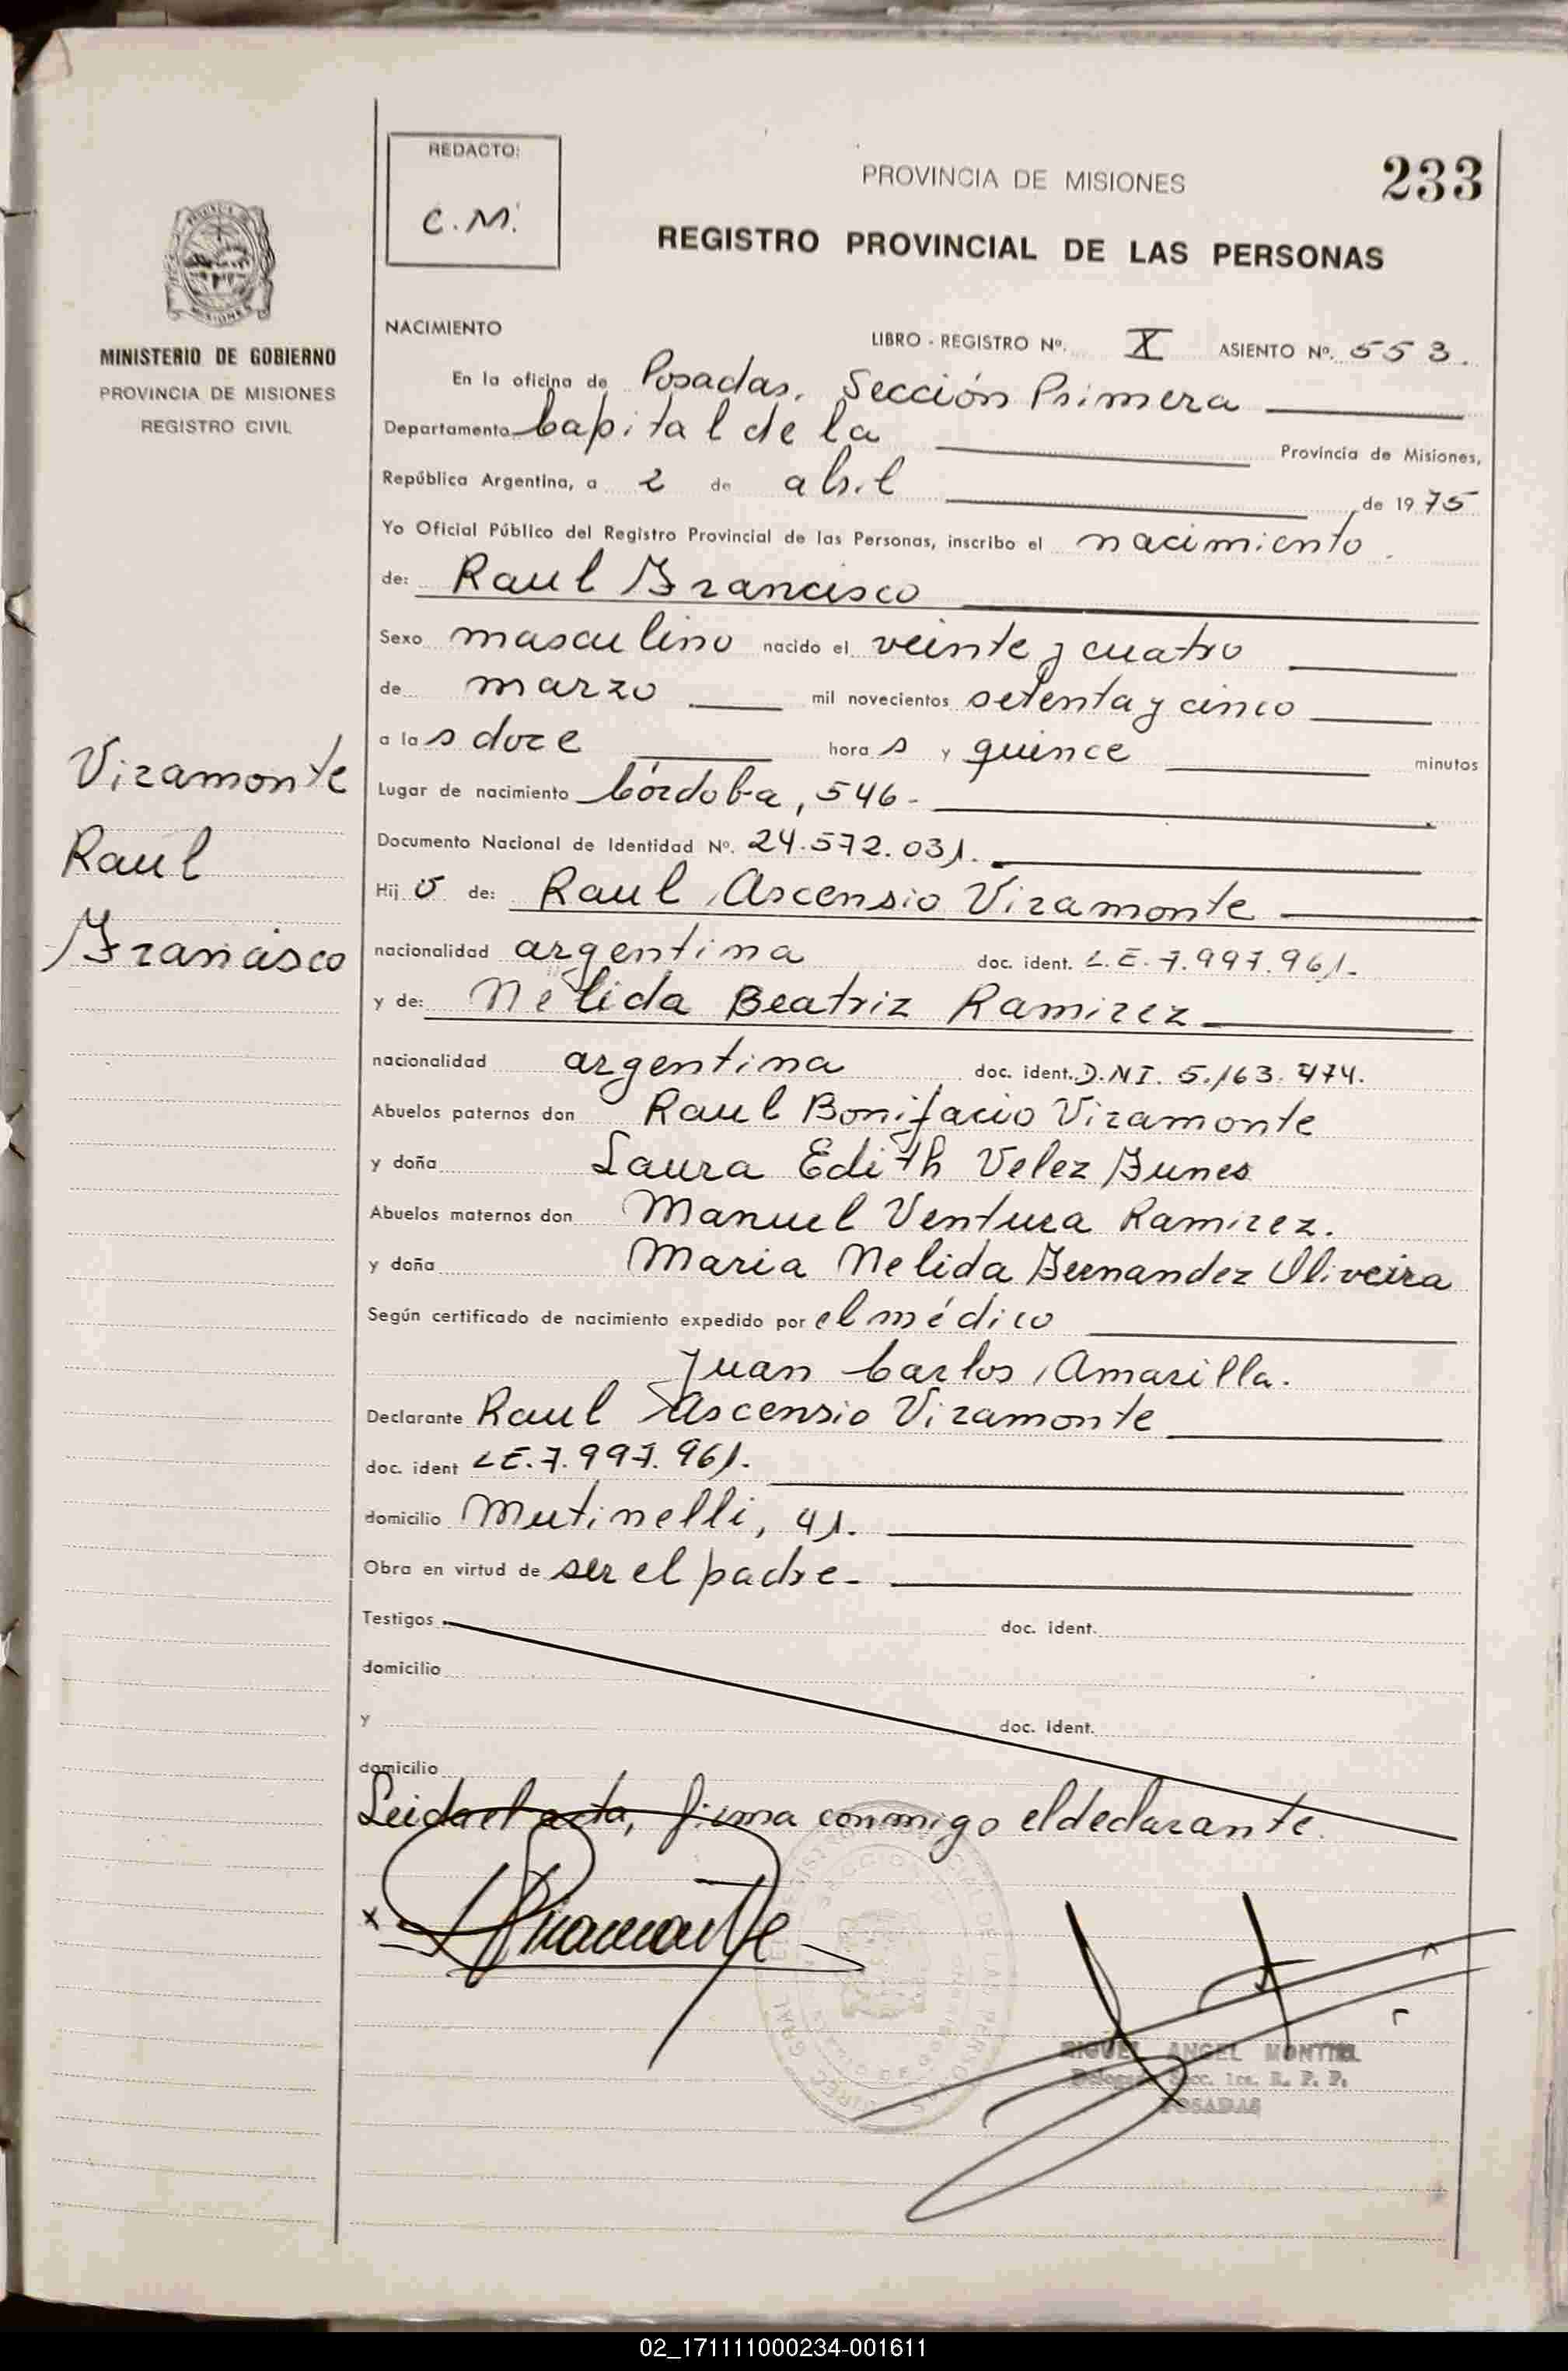 REDACTO:
C.M.
PROVINCIA DE MISIONES
233
REGISTRO PROVINCIAL DE LAS PERSONAS
MINISTERIO DE GOBIERNO
PROVINCIA DE MISIONES
REGISTRO CIVIL
NACIMIENTO LIBRO - REGISTRO Nº. X ASIENTO Nº. 553.
En la oficina de Posadas. Sección Primera
Departamento Capital de la Provincia de Misiones,
República Argentina, a 2 de abril de 1975
Yo Oficial Público del Registro Provincial de las Personas, inscribo el nacimiento.
de: Raul Francisco
Sexo masculino nacido el veinte y cuatro
de marzo mil novecientos setenta y cinco
a las doce horas y quince minutos
Lugar de nacimiento Córdoba, 546-
Documento Nacional de Identidad Nº. 24.572.031.
Viramonte
Raul
Francisco
Hijo de: Raul Ascensio Viramonte
nacionalidad argentina doc. ident. L.E. 7.997.961-
y de: Nélida Beatriz Ramirez
nacionalidad argentina doc. ident. D.N.I. 5.163.474.
Abuelos paternos don Raul Bonifacio Viramonte
y doña Laura Edith Velez Funes
Abuelos maternos don Manuel Ventura Ramirez.
y doña Maria Nelida Fernandez Oliveira
Según certificado de nacimiento expedido por el médico
Juan Carlos Amarilla.
Declarante Raul Ascensio Viramonte
doc. ident LE. 7.997.961.
domicilio Mutinelli, 41.
Obra en virtud de ser el padre-
Testigos doc. ident.
domicilio
y doc. ident.
domicilio
Leida el acta, firma conmigo el declarante.
x Viramonte
MIGUEL ANGEL MONTIEL
Secc. 1ra. R. P. P.
POSADAS
02_171111000234-001611